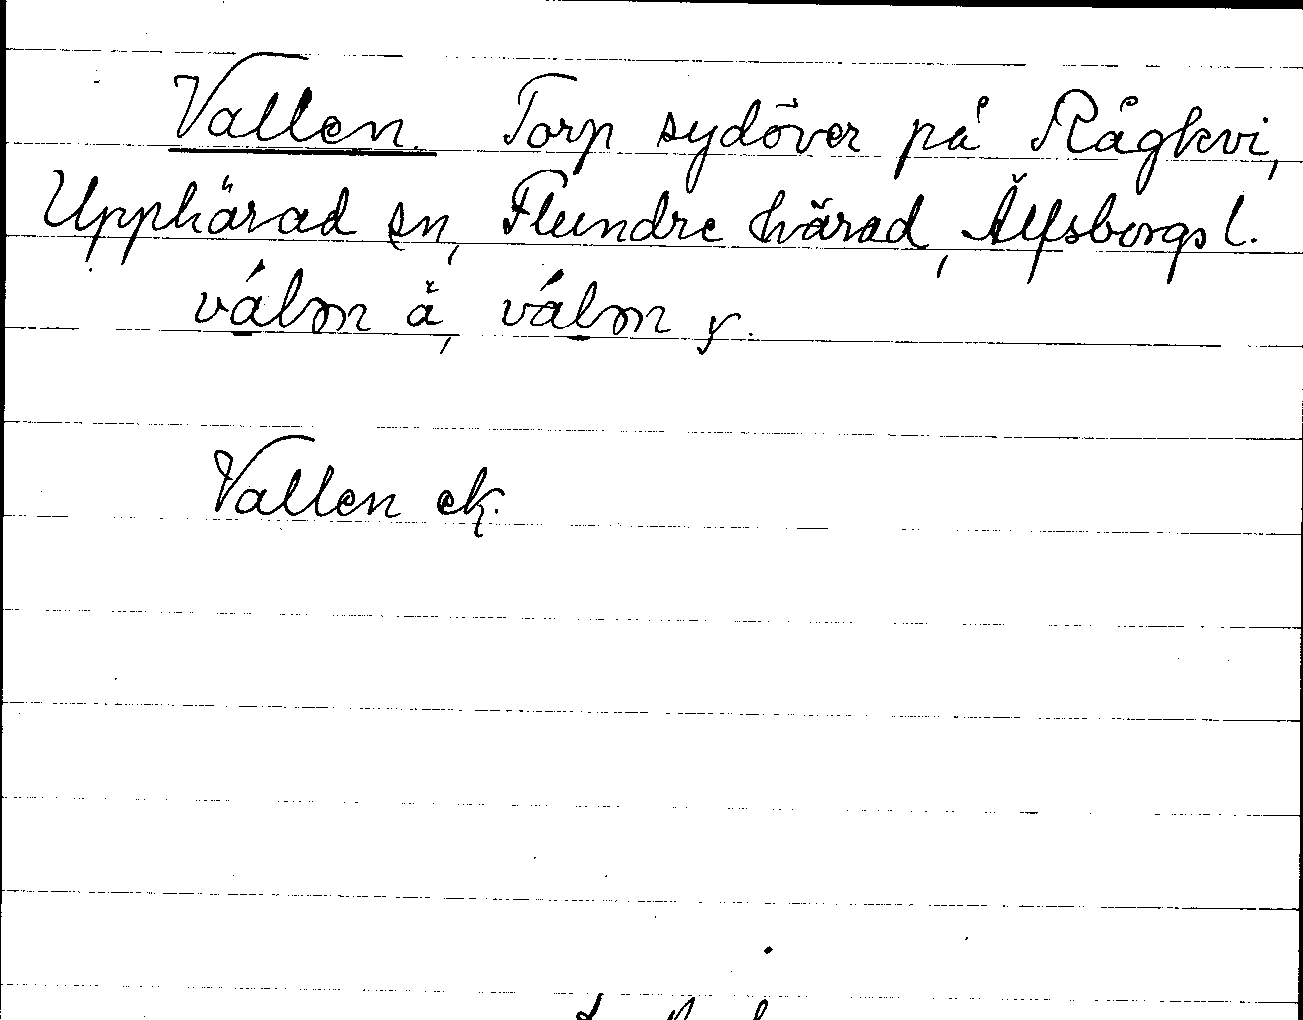 Vallen. Torp sydöver på Rågkvi,
Upphärad sn, Flundre härad, Älfsborgs l.
válan ä, válan y.
Vallen ek.